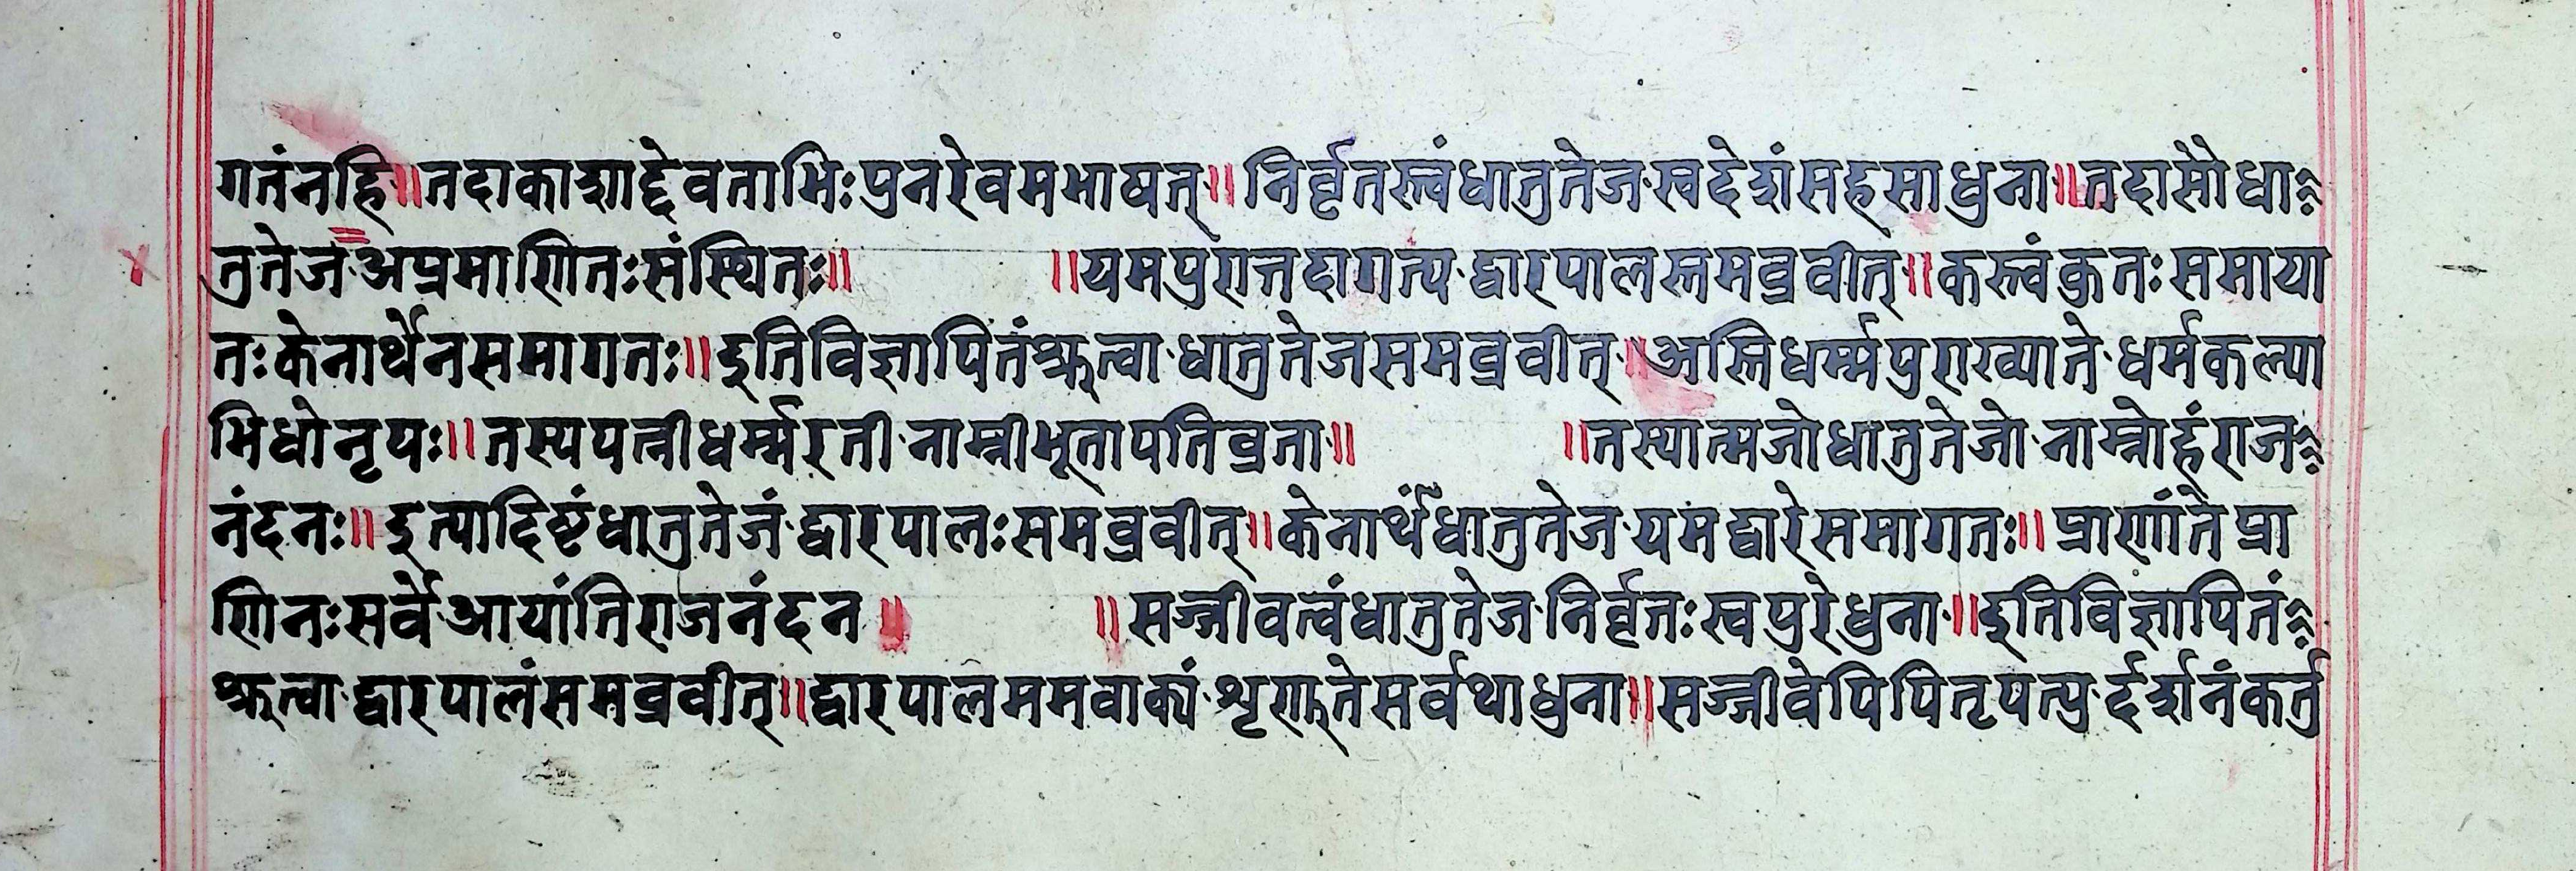 गतंनहि॥तदाकाशाद्देवताभिःपुनरेवमभाषत्॥निर्वृतस्त्वंधातुतेज·स्वदेशंसहसाधुना॥तदासौधा
तुतेज·अप्रमाणितःसंस्थितः॥ ॥यमपुरात्तदागत्य·द्वारपालस्तमब्रवीत्॥कस्त्वंकुतःसमाया
तःकेनार्थेनसमागतः॥इतिविज्ञापितंश्रुत्वा·धातुतेजसमब्रवीत्॥अस्तिधर्म्मपुराख्याते·धर्मकल्पा
भिधोनृपः॥तस्यपत्नीधर्म्मरती·नाम्नीभूतापतिव्रता॥ ॥तस्यात्मजोधातुतेजो·नाम्नोहंराज
नंदनः॥इत्यादिष्टंधातुतेजं·द्वारपालःसमब्रवीत्॥केनार्थंधातुतेज·यमद्वारेसमागतः॥प्राणांतेप्रा
णिनःसर्वे·आयांतिराजनंदन॥ ॥सज्जीवत्वंधातुतेज·निर्वृतःस्वपुरेधुना॥इतिविज्ञापितं
श्रुत्वा·द्वारपालंसमब्रवीत्॥द्वारपालममवाक्यं·शृणुतेसर्वथाधुना॥सज्जीवेपिपितृपत्यु·र्दर्शनंकर्तु